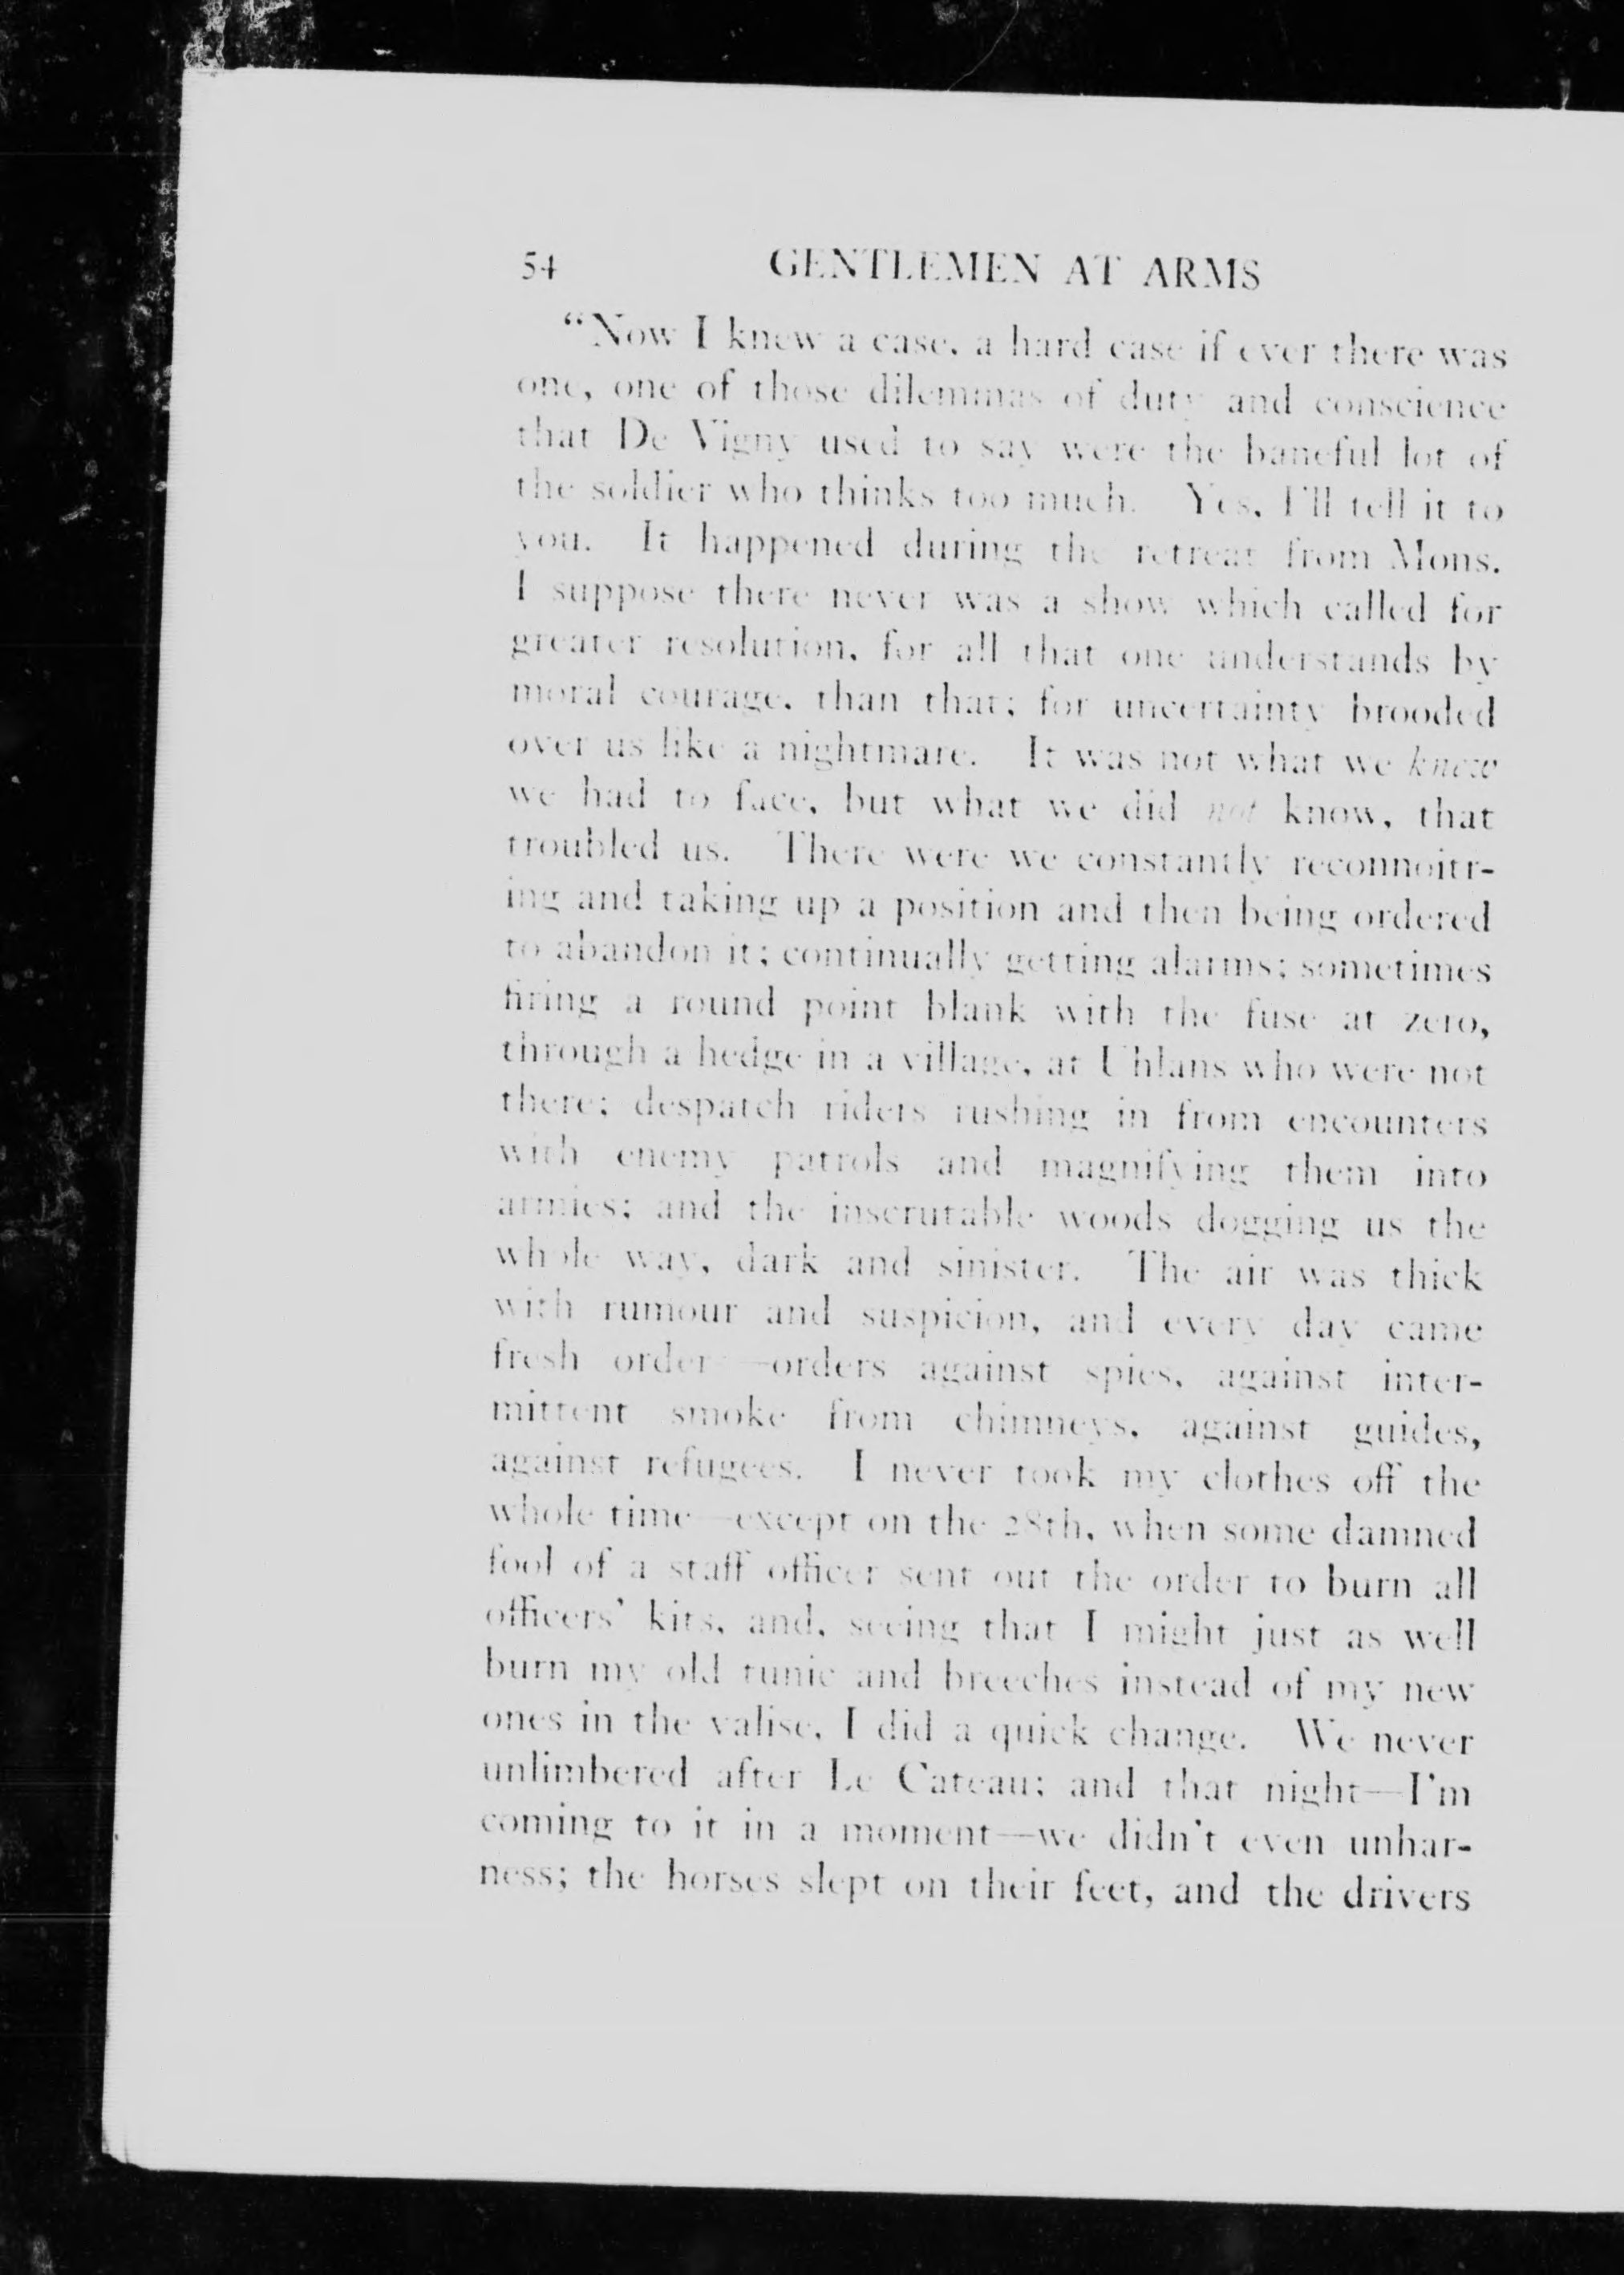 54 GENTLEMEN AT ARMS
“Now I knew a case, a hard case if ever there was
one, one of those dilemmas of duty and conscience
that De Vigny used to say were the baneful lot of
the soldier who thinks too much. Yes, I'll tell it to
you. It happened during the retreat from Mons.
I suppose there never was a show which called for
greater resolution, for all that one understands by
moral courage, than that; for uncertainty brooded
over us like a nightmare. It was not what we knew
we had to face, but what we did not know, that
troubled us. There were we constantly reconnoitr-
ing and taking up a position and then being ordered
to abandon it; continually getting alarms; sometimes
firing a round point blank with the fuse at zero,
through a hedge in a village, at Uhlans who were not
there; despatch riders rushing in from encounters
with enemy patrols and magnifying them into
armies; and the inscrutable woods dogging us the
whole way, dark and sinister. The air was thick
with rumour and suspicion, and every day came
fresh orders—orders against spies, against inter-
mittent smoke from chimneys, against guides,
against refugees. I never took my clothes off the
whole time—except on the 28th, when some damned
fool of a staff officer sent out the order to burn all
officers' kits, and, seeing that I might just as well
burn my old tunic and breeches instead of my new
ones in the valise, I did a quick change. We never
unlimbered after Le Cateau; and that night—I'm
coming to it in a moment—we didn't even unhar-
ness; the horses slept on their feet, and the drivers